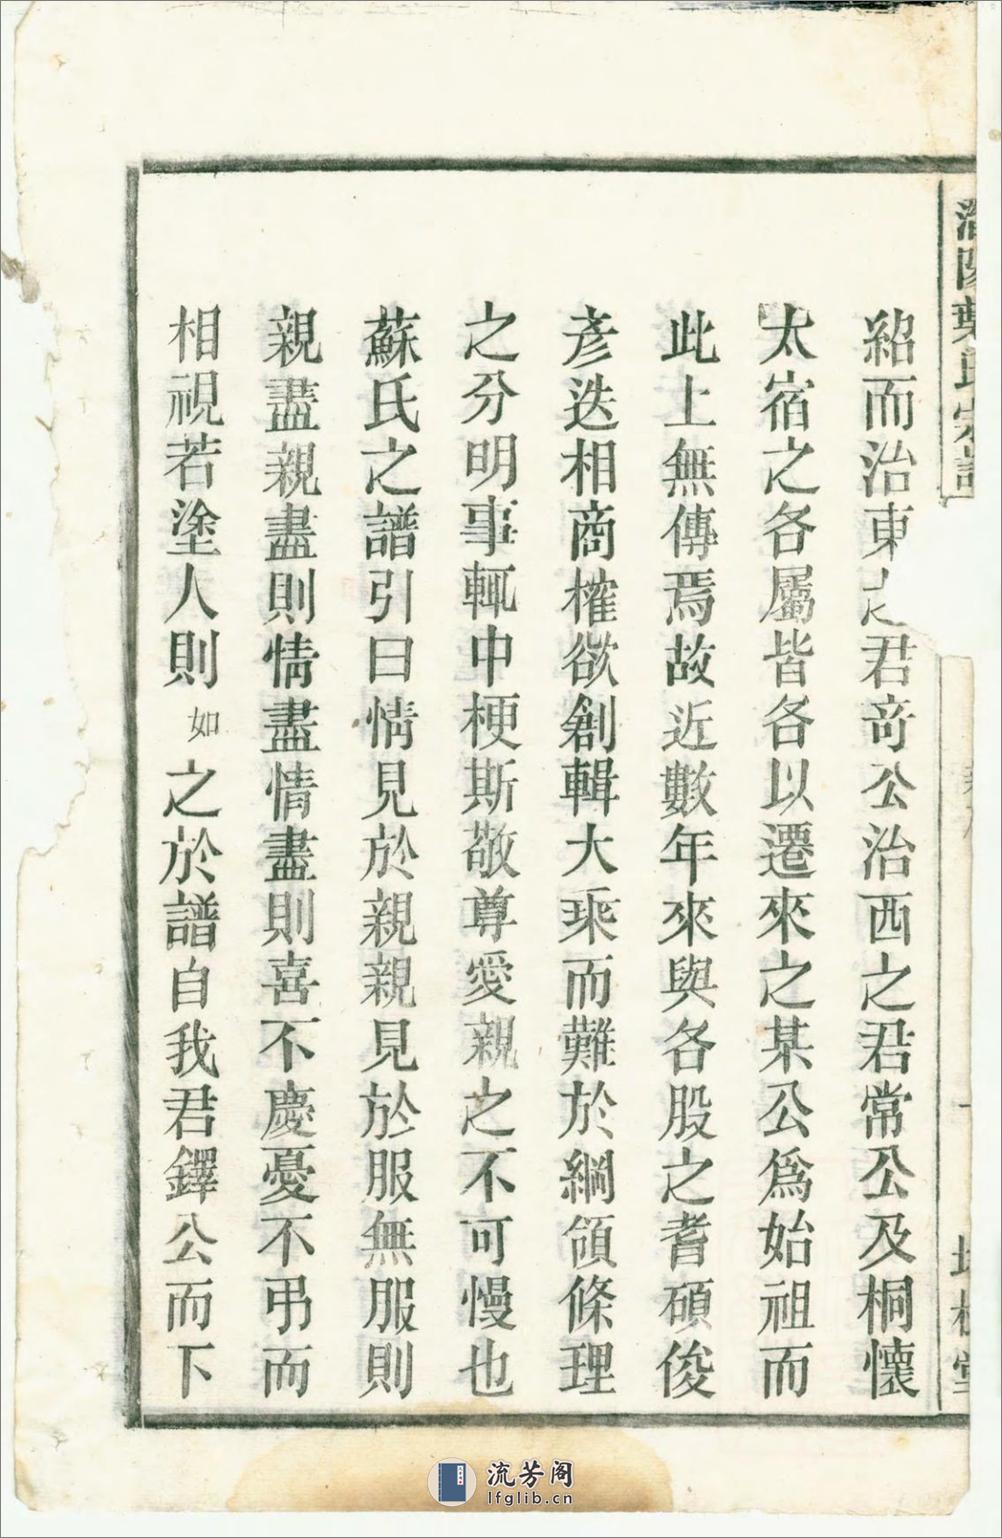 紹而治東之君竒公治西之君常公及桐懷
太宿之各屬皆各以遷來之某公爲始祖而
此上無傳焉故近數年來與各股之耆碩俊
彥迭相商榷欲創輯大乘而難於綱領條理
之分明事輒中梗斯敬尊愛親之不可慢也
蘇氏之譜引曰情見於親親見於服無服則
親盡親盡則情盡情盡則喜不慶憂不弔而
相視若塗人則如之於譜自我君鐸公而下
流芳阁
lfglib.cn